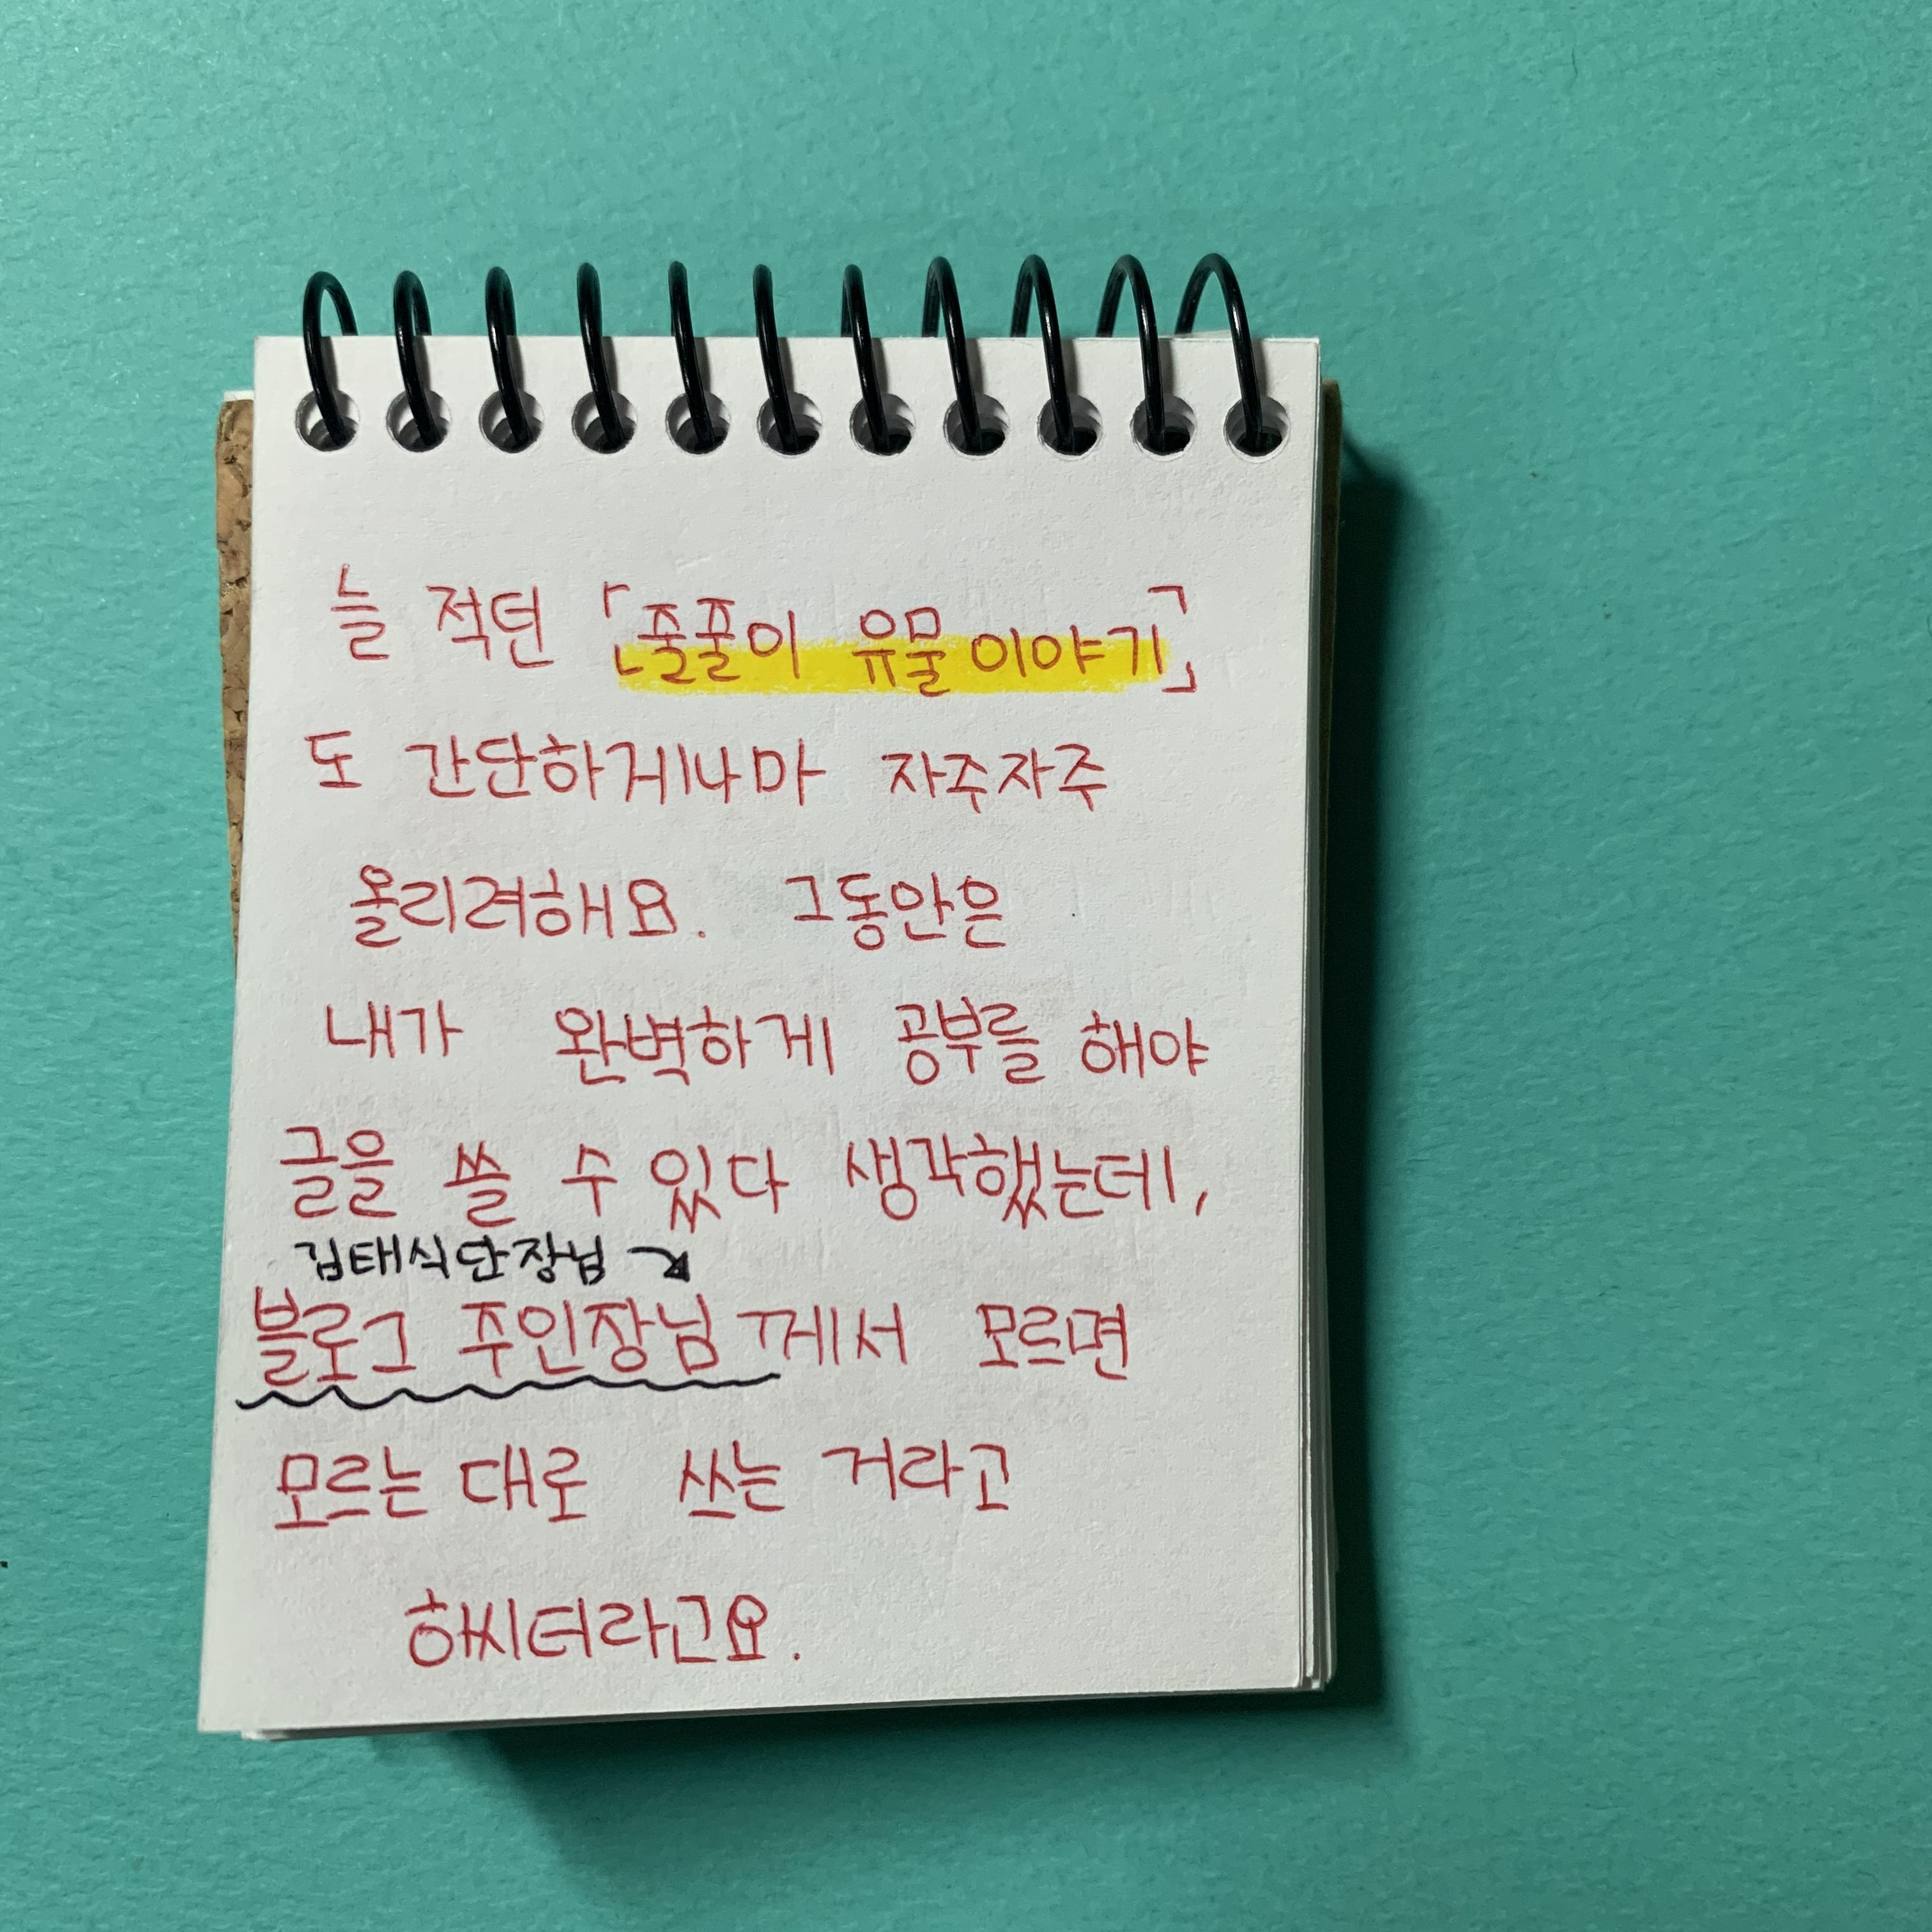 늘 적던 「줄꿀이 유물 이야기」
도 간단하게나마 자주자주
올리려해요. 그동안은
내가 완벽하게 공부를 해야
글을 쓸 수 있다 생각했는데,
김태식단장님 ↘
블로그 주인장님께서 모르면
모르는 대로 쓰는 거라고
하씨더라고요.